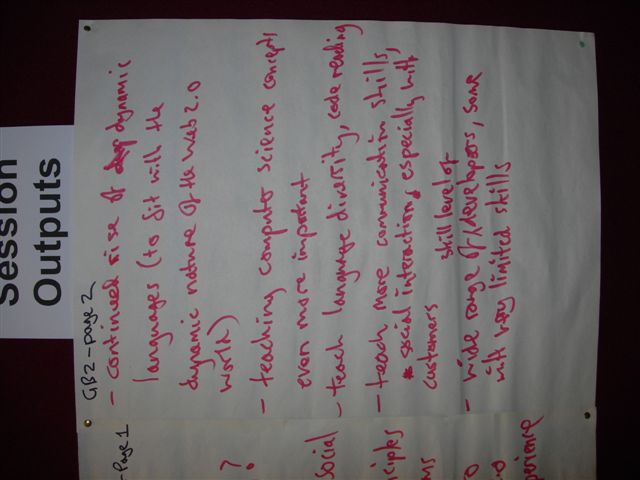 Session
Outputs
GB2 - page 2
- continued rise of dynamic
languages (to fit with the
dynamic nature of the Web 2.0
world)
- teaching computer science concepts
even more important
- teach language diversity, code reading
- teach more communication skills,
social interaction, especially with
customers
skill level of
- wide range of developers, some
with very limited skills
- Page 1
?
social